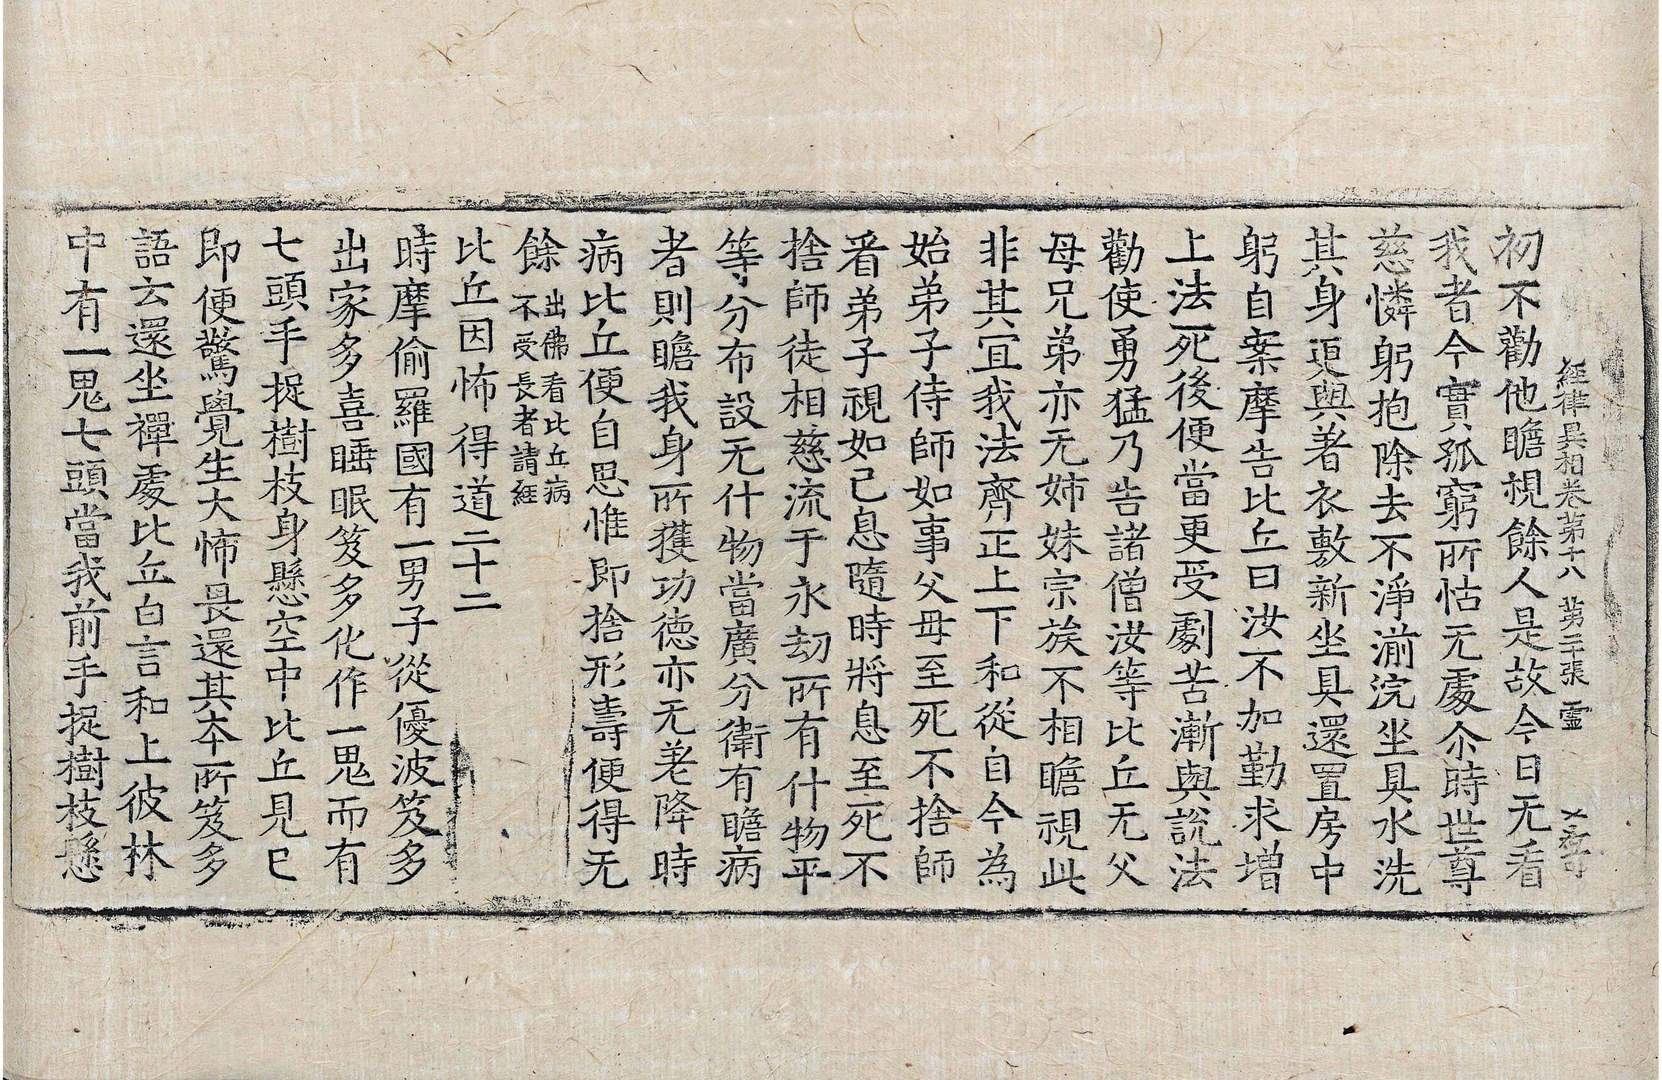 經律異相卷第十八 第二十張 靈
初不勸他瞻視餘人是故今日无看
我者今實孤窮所怙无䖏尒時世尊
慈憐躬抱除去不淨湔浣坐具水洗
其身更與著衣敷新坐具還置房中
躬自案摩告比丘曰汝不加勤求增
上法死後便當更受劇苦漸與說法
勸使勇猛乃告諸僧汝等比丘无父
母兄弟亦无姉妹宗族不相瞻視此
非其宜我法齊正上下和從自今為
始弟子侍師如事父母至死不捨師
看弟子視如己息隨時將息至死不
捨師徒相慈流于永劫所有什物平
等分布設无什物當廣分衛有瞻病
者則瞻我身所獲功德亦无差降時
病比丘便自思惟即捨形壽便得无
餘 出佛看比丘病不受長者請經
比丘因怖得道二十二
時摩偷羅國有一男子從優波笈多
出家多喜睡眠笈多化作一鬼而有
七頭手捉樹枝身懸空中比丘見已
即便驚覺生大怖畏還其夲所笈多
語云還坐禪䖏比丘白言和上彼林
中有一鬼七頭當我前手捉樹枝懸